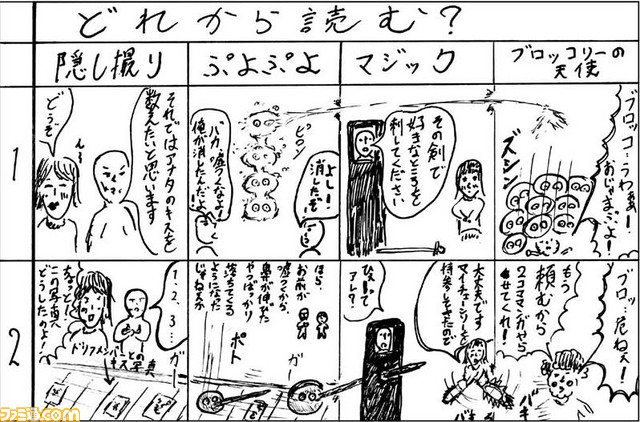 どれから読む？
隠し撮り
ぷよぷよ
マジック
ブロッコリーの
天使
1
どうぞ
ん〜
それではアナタのキスを
数えたいと思います
"バカ
俺が消したんだよ!"
ピロン
よし!
消したぞ
その剣で
好きなところを
刺してください
ブロッコ…うわぁ!
おじゃまぷよ!
ズドシン
2
1.2.3…
ガー
この写真
どうしたのよ!
ドリフメンバーとの
キス写真
ほら、
お前が
嘘つくから
鼻が伸びた
やつばっかり
落ちてくる
ようになった
じゃねえか
ポト
ガー
アレ?
大丈夫です
マイチェーンソーを
持参してきたので
ブロ…危ねぇ!
もう
頼むから
2コママンガやら
せてくれ!
ファミ通.com